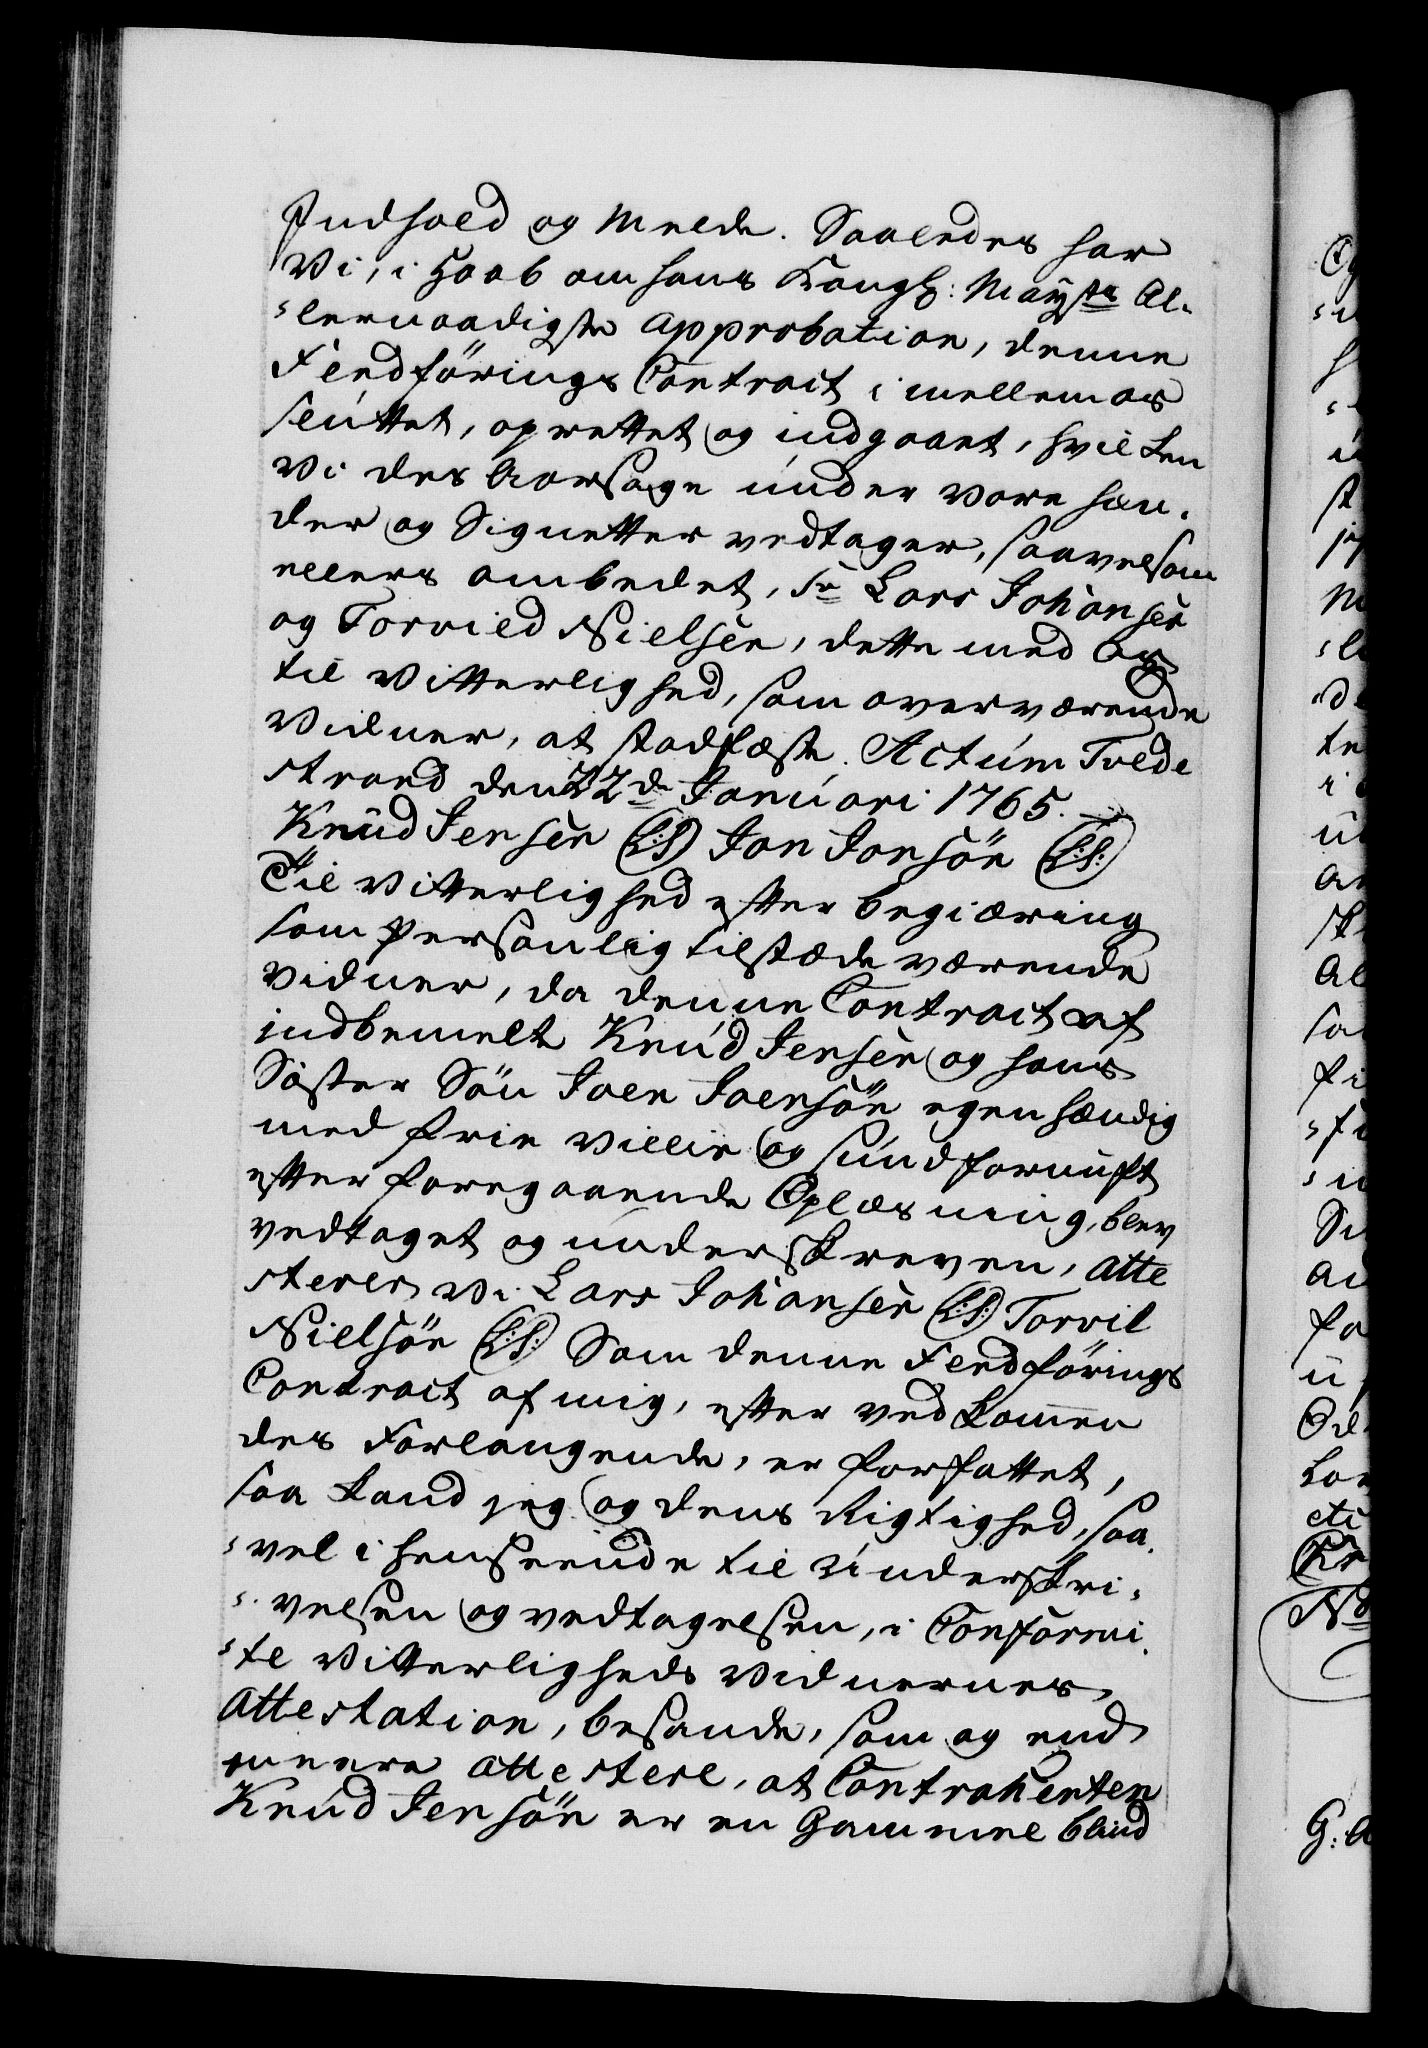 Indhold og Meele. Saaledes har
Vi, i Haab om hans Kongl: Mayts Al-
lernaadigste Approbation, denne
Fledførings Contract imellem os
sluttet, oprettet og indgaaet, hvilken
vi des Aarsage under vore Hæn-
der og Signetter vedtager, saavelsom
ellers ombedet, Sr Lars Johansen
og Torvild Nielsen, dette med os
til Vitterlighed, som overværende
Vidner, at stadfæste. Actum Tvede
strand den 22de Januari 1765.
Knud Jensen (L:S) Jon Jonsön (L:S:)
Til Vitterlighed efter begiæring
som Personlig tilstæde værende
Vidner, da denne Contract af
indbemelte Knud Jensen og hans
Søster Søn Joen Joensön egenhændig
med frie villie og sund fornuft
efter foregaaende Oplæsning, blev
vedtaget og underskreven, atte
sterer Vi. Lars Johansen (L:S:) Torvil
Nielsön (L:S:) Som denne Fledførings
Contract af mig, efter vedkommen
des Forlangende, er forfattet,
saa kand jeg og dens Rigtighed, saa-
vel i henseende til Underskri-
velsen og vedtagelsen, i Conformi-
te Vitterligheds Vidnernes
Attestation, besande, som og end
meere attestere, at Contrahenten
Knud Jensön er en Gammel blind